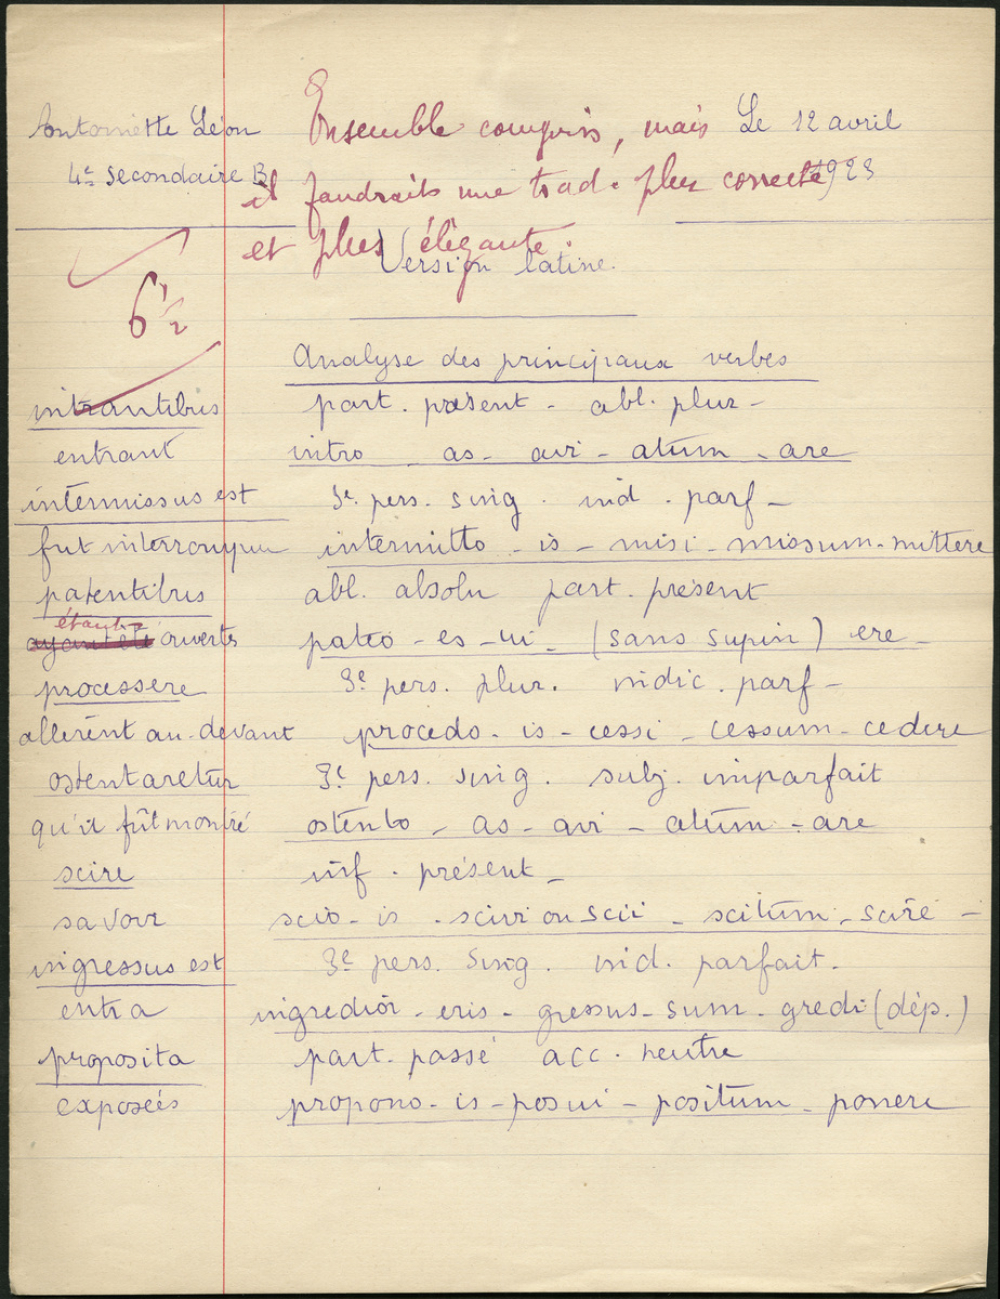 Antoinette Léon
4e secondaire B
Le 12 avril
1923
Ensemble compris, mais
il faudrait une trad. plus correcte
et plus élégante.
6 1/2
Version latine.
Analyse des principaux verbes
intrantibus part. présent - abl. plur -
entrant intro as - avi - atum - are
intermissus est 3e. pers. sing. ind. parf -
fut interrompu intermitto - is - misi - missum - mittere
patentibus abl. absolu part. présent
étant
ayant été ouvertes pateo - es - ui - (sans supin) ere -
processere 3e pers. plur. indic. parf -
allèrent au-devant procedo - is - cessi - cessum - cedere
ostentaretur 3e pers. sing. subj. imparfait
qu'il fût montré ostento - as - avi - atum - are
scire inf. présent -
savoir scio - is - scivi ou scii - scitum - scire -
ingressus est 3e pers. sing. ind. parfait.
entra ingredior - eris - gressus - sum - gredi (dép.)
proposita part. passé acc. neutre
exposées propono - is - posui - positum - ponere